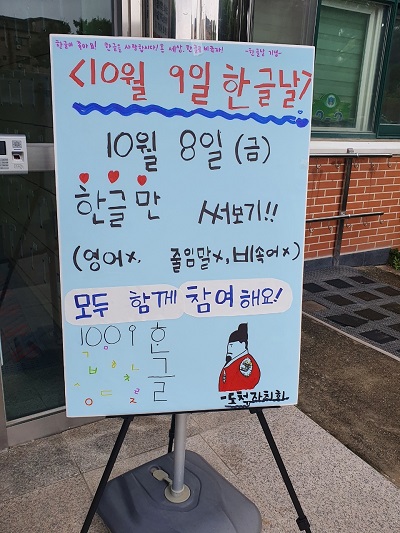 한글아 놀아요! 한글을 사랑합시다! 온 세상, 한글로 비추다! -한글날 기념-
<10월 9일 한글날>
10월 8일 (금)
한글만 써보기!!
(영어x, 줄임말x, 비속어x)
모두 함께 참여해요!
1009 한글
-도청자치회